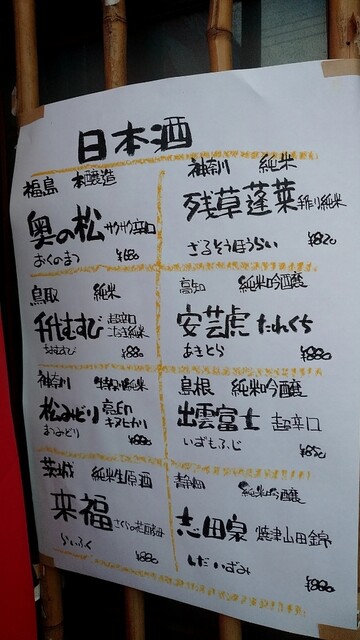 日本酒
福島 本醸造
奥の松 サクサク辛口
おくのまつ ¥680
神奈川 純米
残草蓬莱 手作り純米
ざるそうほうらい ¥820
鳥取 純米
千代むすび 超辛口 こなき純米
ちよむすび ¥880
高知 純米吟醸
安芸虎 たれくち
あきとら ¥880
神奈川 特別純米
松みどり 高台 キヌヒカリ
まつみどり ¥880
島根 純米吟醸
出雲富士 超辛口
いずもふじ ¥850
茨城 純米生原酒
来福 さくらの花酵母
らいふく ¥880
静岡 純米吟醸
志田泉 焼津山田錦
しだいずみ ¥980